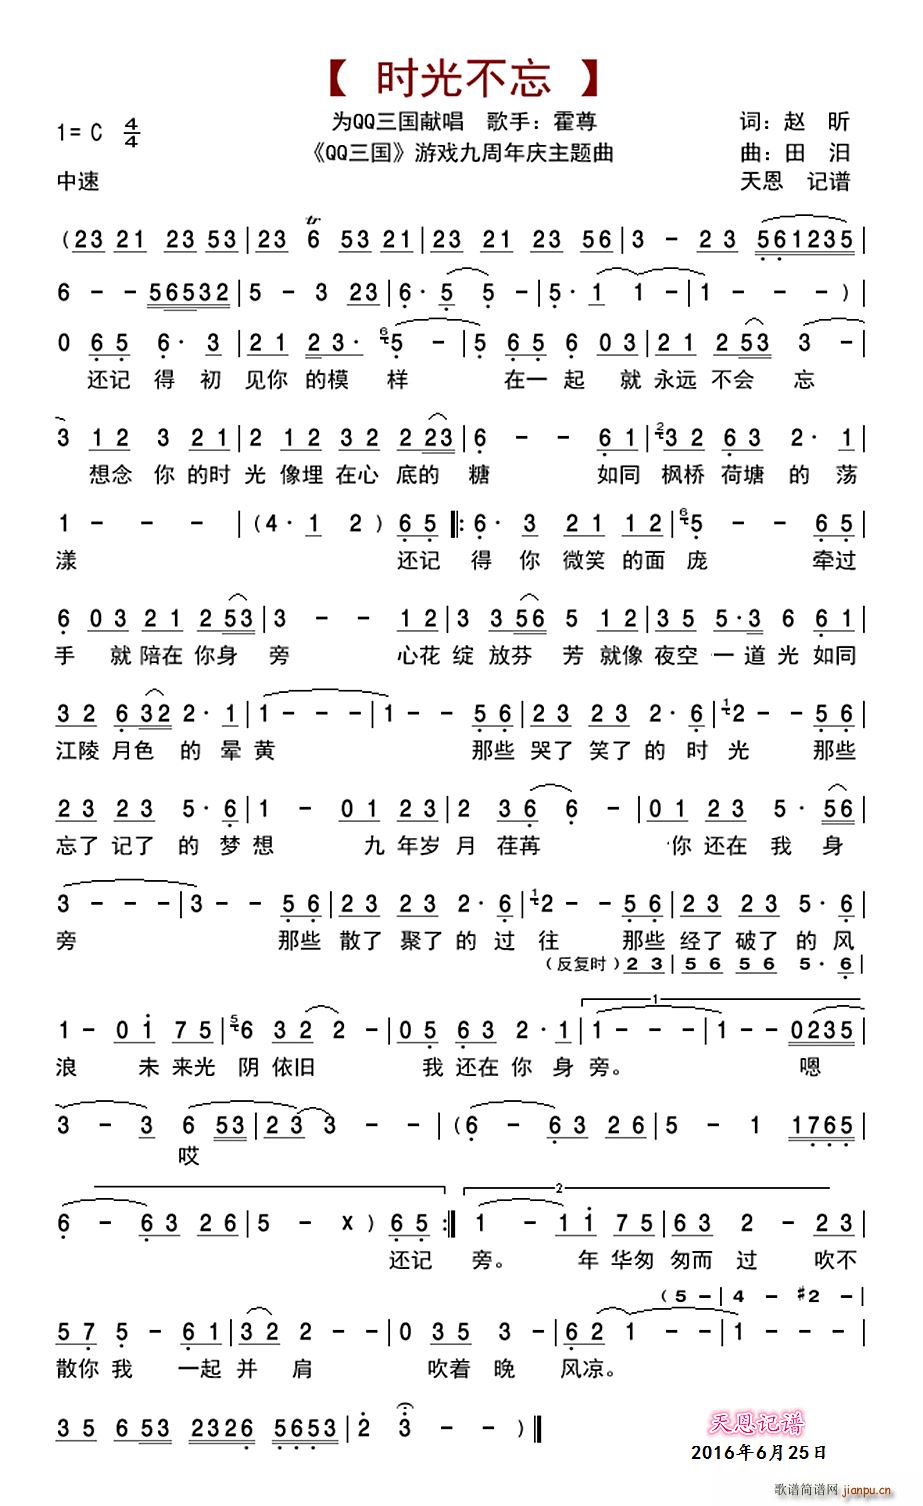 【 时光不忘 】
1=C 4/4
为QQ三国献唱 歌手：霍尊
词：赵 昕
《QQ三国》游戏九周年庆主题曲
曲：田 汨
中速
天恩 记谱
(23 21 23 53 | 23 6 53 21 | 23 21 23 56 | 3 - 23 561235 |
6 - - 56532 | 5 - 3 23 | 6· 5 5 - | 5· 1 1 - | 1 - - - ) |
0 65 6· 3 | 21 23· 65 - | 5 65 6 03 | 21 253 3 - |
还记 得 初 见你 的模 样 在一 起 就 永远 不会 忘
3 12 3 21 | 2 12 32 223 | 6 - - 61 | 232 63 2· 1 |
想念 你 的时 光 像埋 在心 底的 糖 如同 枫桥 荷塘 的 荡
1 - - - | (4· 1 2) 65 |: 6· 3 21 12 | 65 - - 65 |
漾 还记 得 你 微笑 的面 庞 牵过
6 03 21 253 | 3 - - 12 | 3 356 5 12 | 35 5·3 6 61 |
手 就 陪在 你身 旁 心花 绽 放芬 芳 就像 夜空 一 道 光 如同
32 632 2· 1 | 1 - - - | 1 - - 56 | 23 23 2· 6 | 12 - - 56 |
江陵 月色 的 晕 黄 那些 哭了 笑了 的 时 光 那些
23 23 5· 6 | 1 - 01 23 | 2 36 6 - | 01 23 5· 56 |
忘了 记了 的 梦 想 九 年岁 月 荏苒 你 还在 我 身
3 - - - | 3 - - 56 | 23 23 2· 6 | 12 - - 56 | 23 23 5· 6 |
旁 那些 散了 聚了 的 过 往 那些 经了 破了 的 风
(反复时) 23 | 56 56 5· 6 |
1 - 01 75 | 56 32 2 - | 05 63 2· 1 | 1 - - - | 1 - - 0235 |
1
浪 未 来光 阴 依旧 我 还在 你 身 旁。 嗯
3 - 3 6 53 | 23 3 - - | (6 - 63 26 | 5 - 1 1765 |
哎
6 - 63 26 | 5 - X ) 65 :| 1 - 11 75 | 63 2 - 23 |
2
还记 旁。 年 华匆 匆而 过 吹不
(5 - | 4 - #2 - |
57 5 - 61 | 32 2 - - | 0 35 3 5 | 62 1 - | 1 - - - |
散你 我 一起 并 肩 吹着 晚 风凉。
35 653 2326 5653 | 2 6 - - ) ‖
天恩记谱
2016年6月25日
歌谱简谱网
jianpu.cn